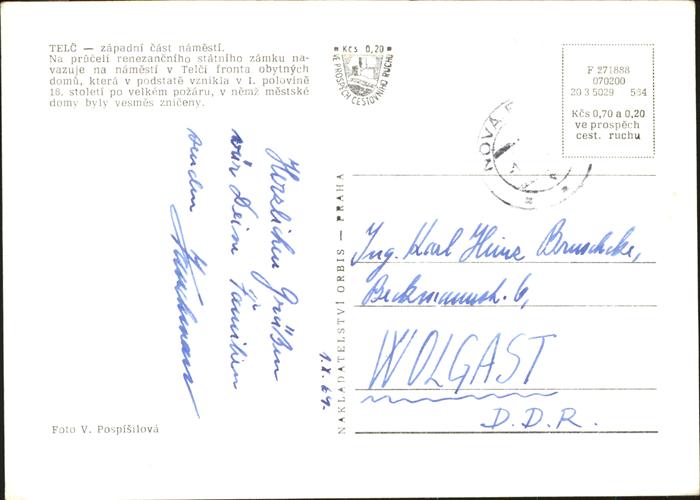 TELČ — západní část náměstí.
Na průčelí renezančního státního zámku na-
vazuje na náměstí v Telči fronta obytných
domů, která v podstatě vznikla v 1. polovině
16. století po velkém požáru, v němž městské
domy byly vesměs zničeny.
Kčs 0,20
VE PROSPĚCH CESTOVNÍHO RUCHU
F 271888
070200
20 3 5029 564
Kčs 0,70 a 0,20
ve prospěch
cest. ruchu
NOVÁ
Herzlichen Grüßen
Dein Familien
senden
1.X.69.
NAKLADATELSTVÍ ORBIS — PRAHA
Ing. Karl Heinz Bruschcke,
Beckmannstr. 6,
WOLGAST
D.D.R.
Foto V. Pospíšilová